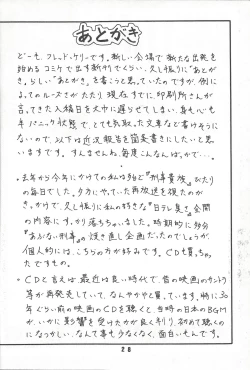 あとがき
どーも、フレッド・ケリーです。新しい会場で新たな出発を
始めるコミケで出す新刊でぐらい、久し振りに"あとが
き"らしい"あとがき"を書こうと思っていたのですが、例に
よってのルーズさがたたり、現在すでに印刷所さんが
言ってきた入稿日を大巾に遅らせてしまい、身も心も
半パニック状態で、とても気取った文章など書けそうに
ないので、以下は近況報告を箇条書きにしたいと思
いますです。すんませんねえ、毎度こんなんばっかで…。
・去年から今年にかけての私は殆ど『刑事貴族』びたり
の毎日でした。夕方にやっていた再放送を視たのが
きっかけで、久し振りに私の好きな"日テレ臭さ"全開
の内容に、すっかり落ちちゃいました。時期的に多分
『あぶない刑事』の焼き直し企画だったのでしょうが、
個人的には、こちらの方が好みです。CDも買っち
たですもの。
・CDと言えば、最近は良い時代で、昔の映画のサントラ
等が再発売していて、なんやかやと買っています。特に30
年ぐらい前の映画のCDを聴くと、当時の日本のBGM
が、いかに影響を受けたかが良く判り、初めて聴くの
になつかしい、なんて事も少なくなく、面白いもんです。
28